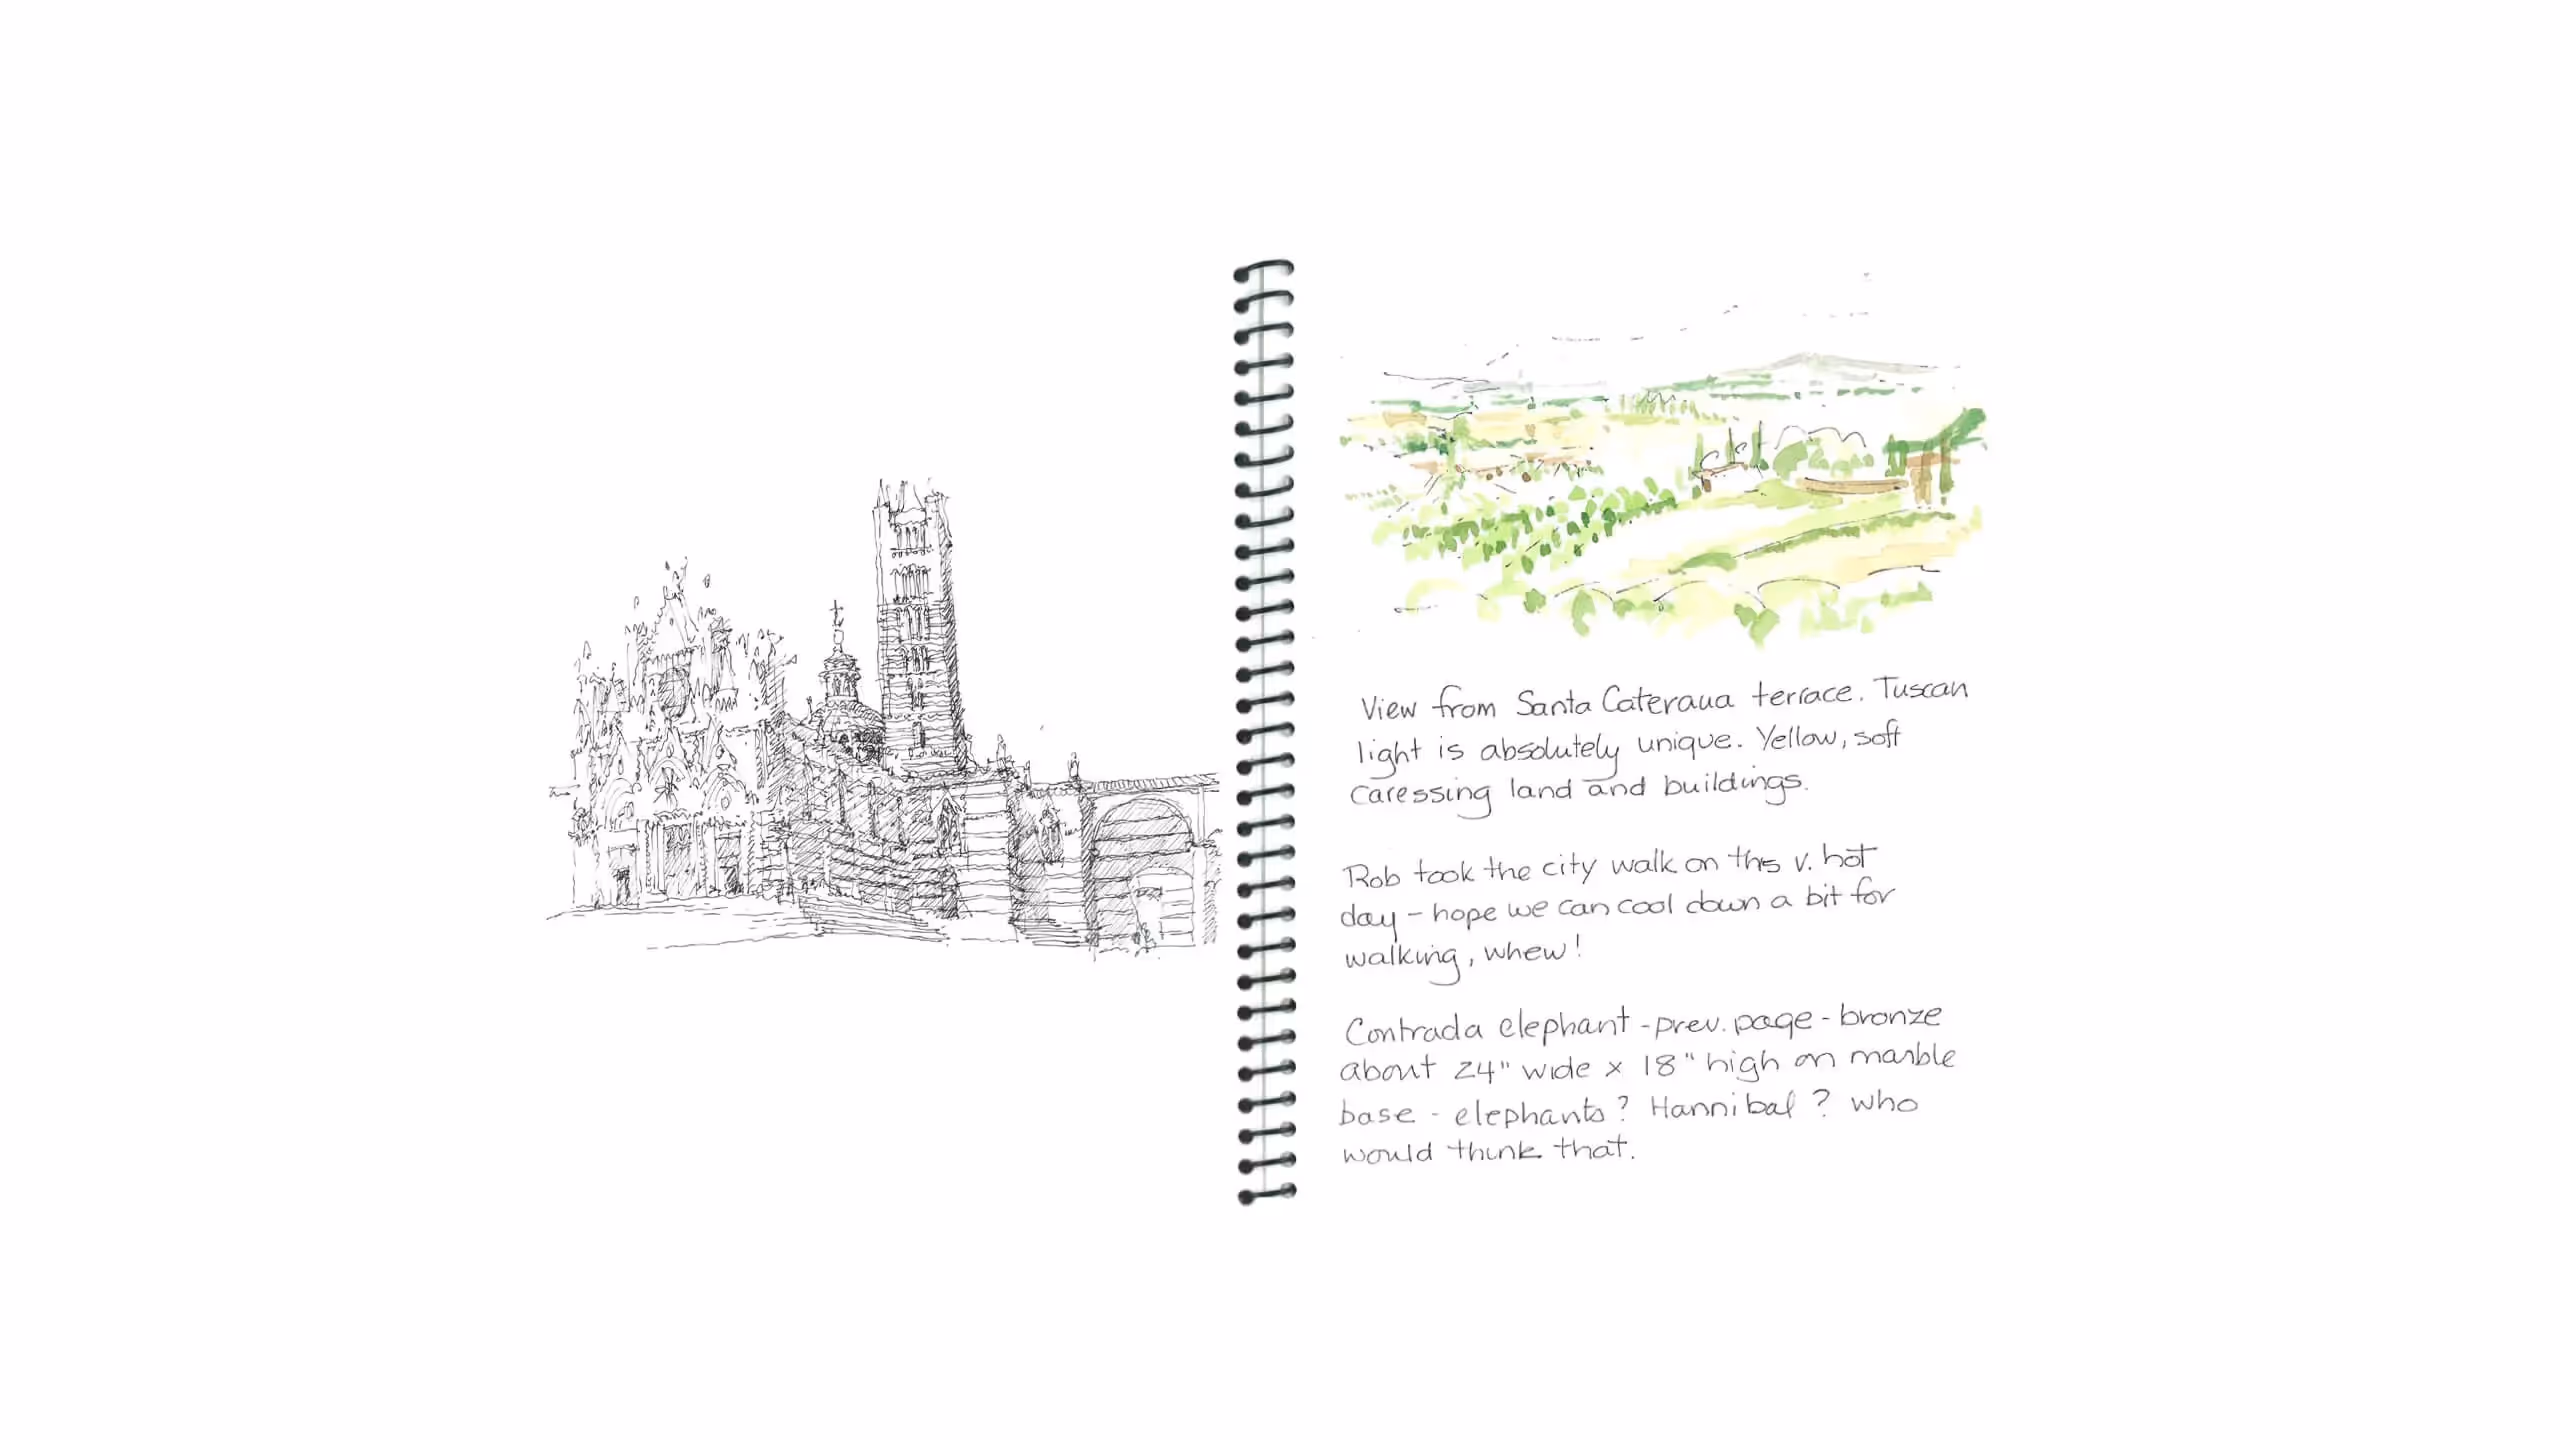 View from Santa Cateraua terrace. Tuscan
light is absolutely unique. Yellow, soft
caressing land and buildings.
Rob took the city walk on this v. hot
day - hope we can cool down a bit for
walking, whew!
Contrada elephant - prev. page - bronze
about 24" wide x 18" high on marble
base - elephants? Hannibal? who
would think that.